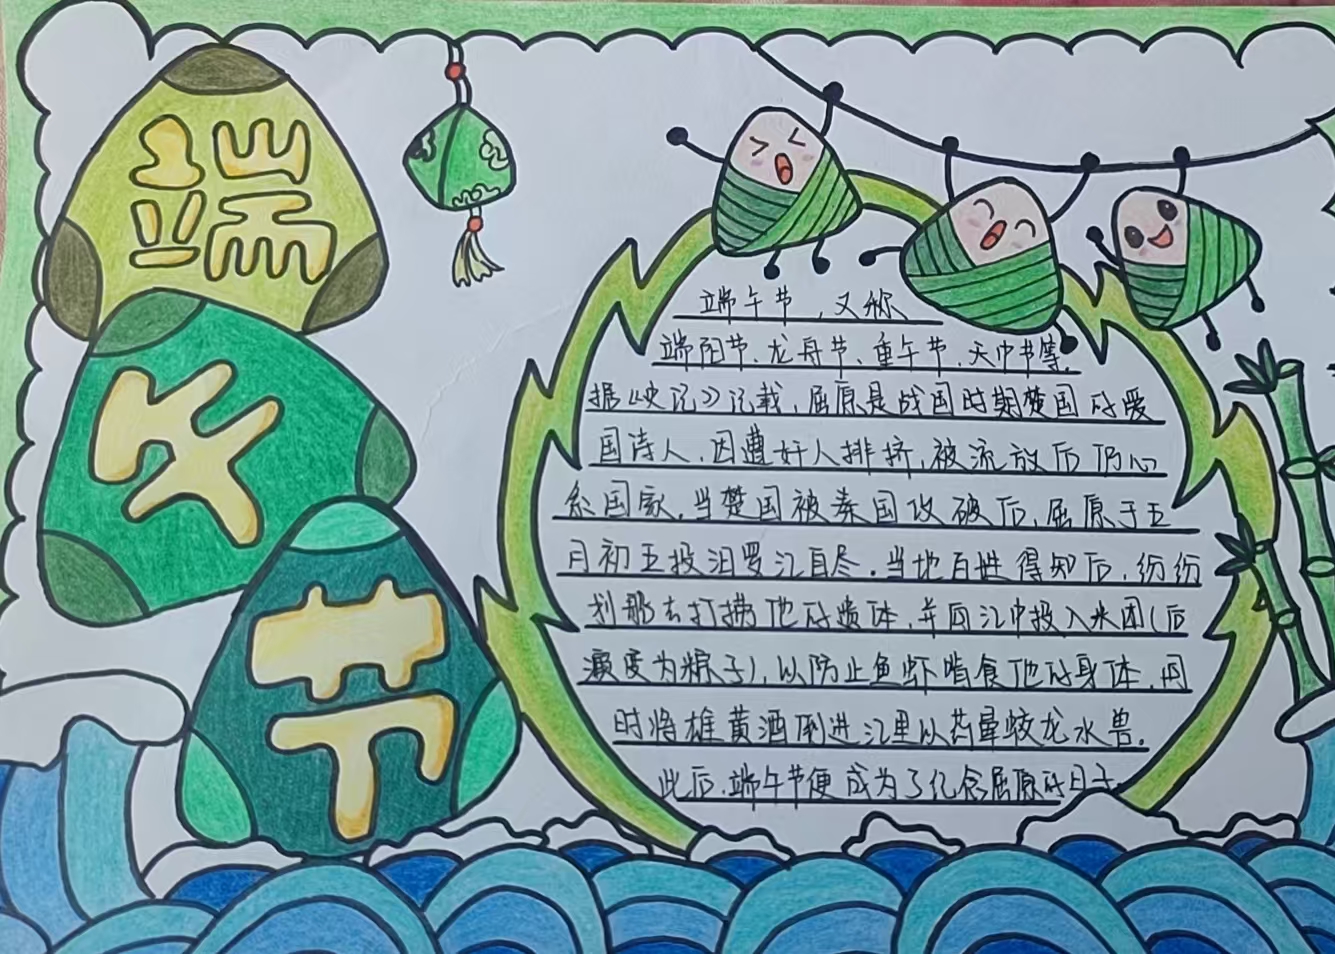 端
午
节
端午节，又称
端阳节、龙舟节、重午节、天中节等。
据《史记》记载，屈原是战国时期楚国的爱
国诗人，因遭奸人排挤，被流放后仍心
系国家。当楚国被秦国攻破后，屈原于五
月初五投汨罗江自尽。当地百姓得知后，纷纷
划船去打捞他的遗体，并向江中投入米团(后
演变为粽子)，以防止鱼虾啃食他的身体，同
时将雄黄酒倒进江里以药晕蛟龙水兽。
此后，端午节便成为了纪念屈原的日子。